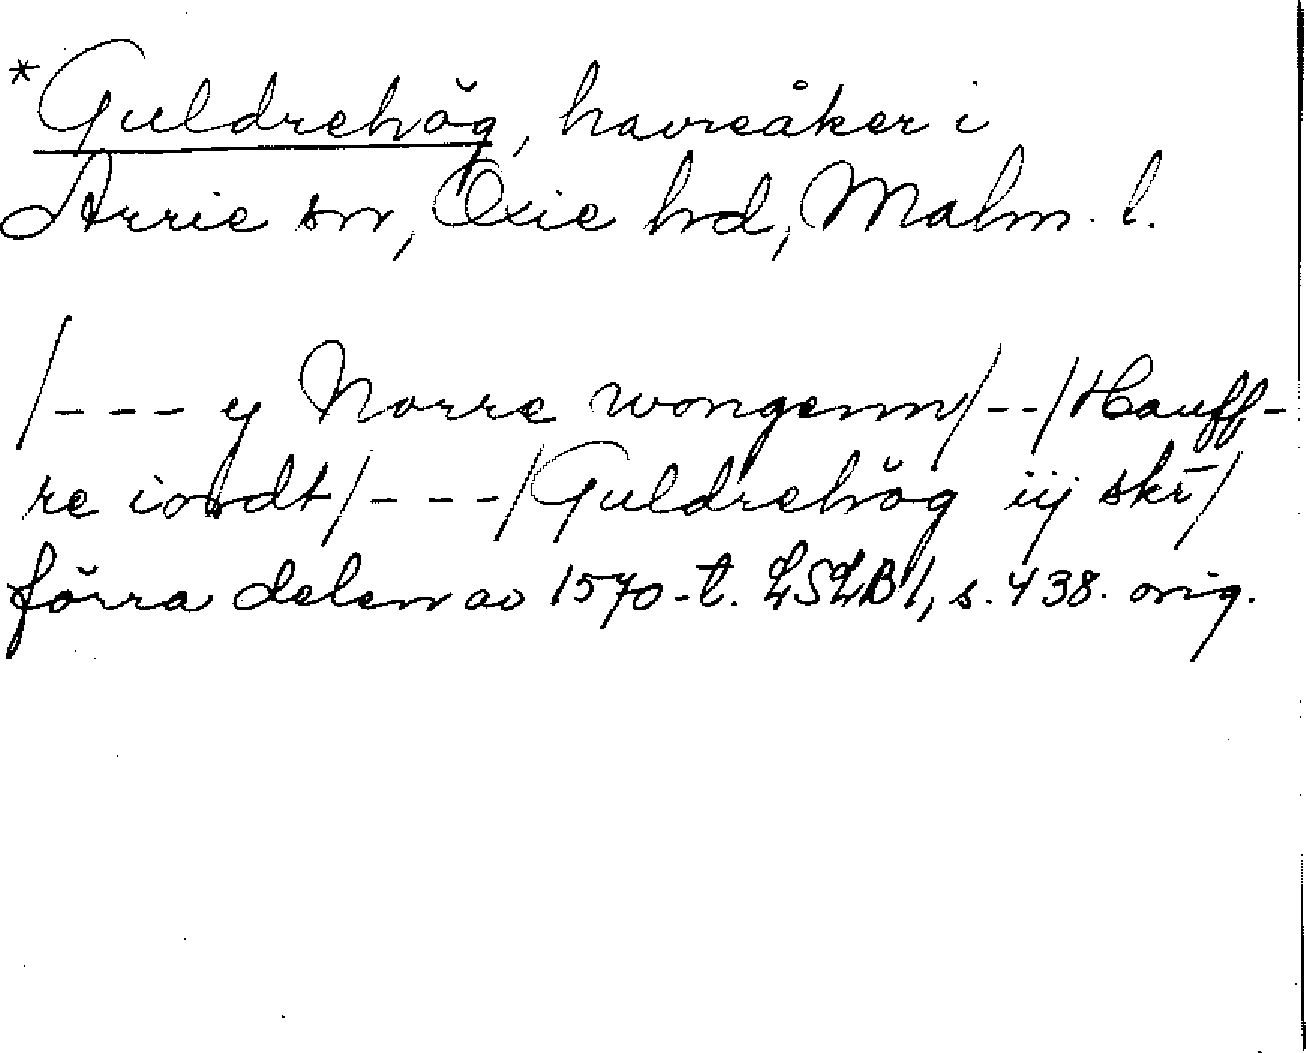 *Guldrehög, havreåker i
Arrie sn, Oxie hd, Malm. l.
/--- y Norre wongenn/--/Hauff-
re iordt/---/Guldrehög iij skr̄/
förra delen av 1570-t. LSLB 1, s. 438. orig.